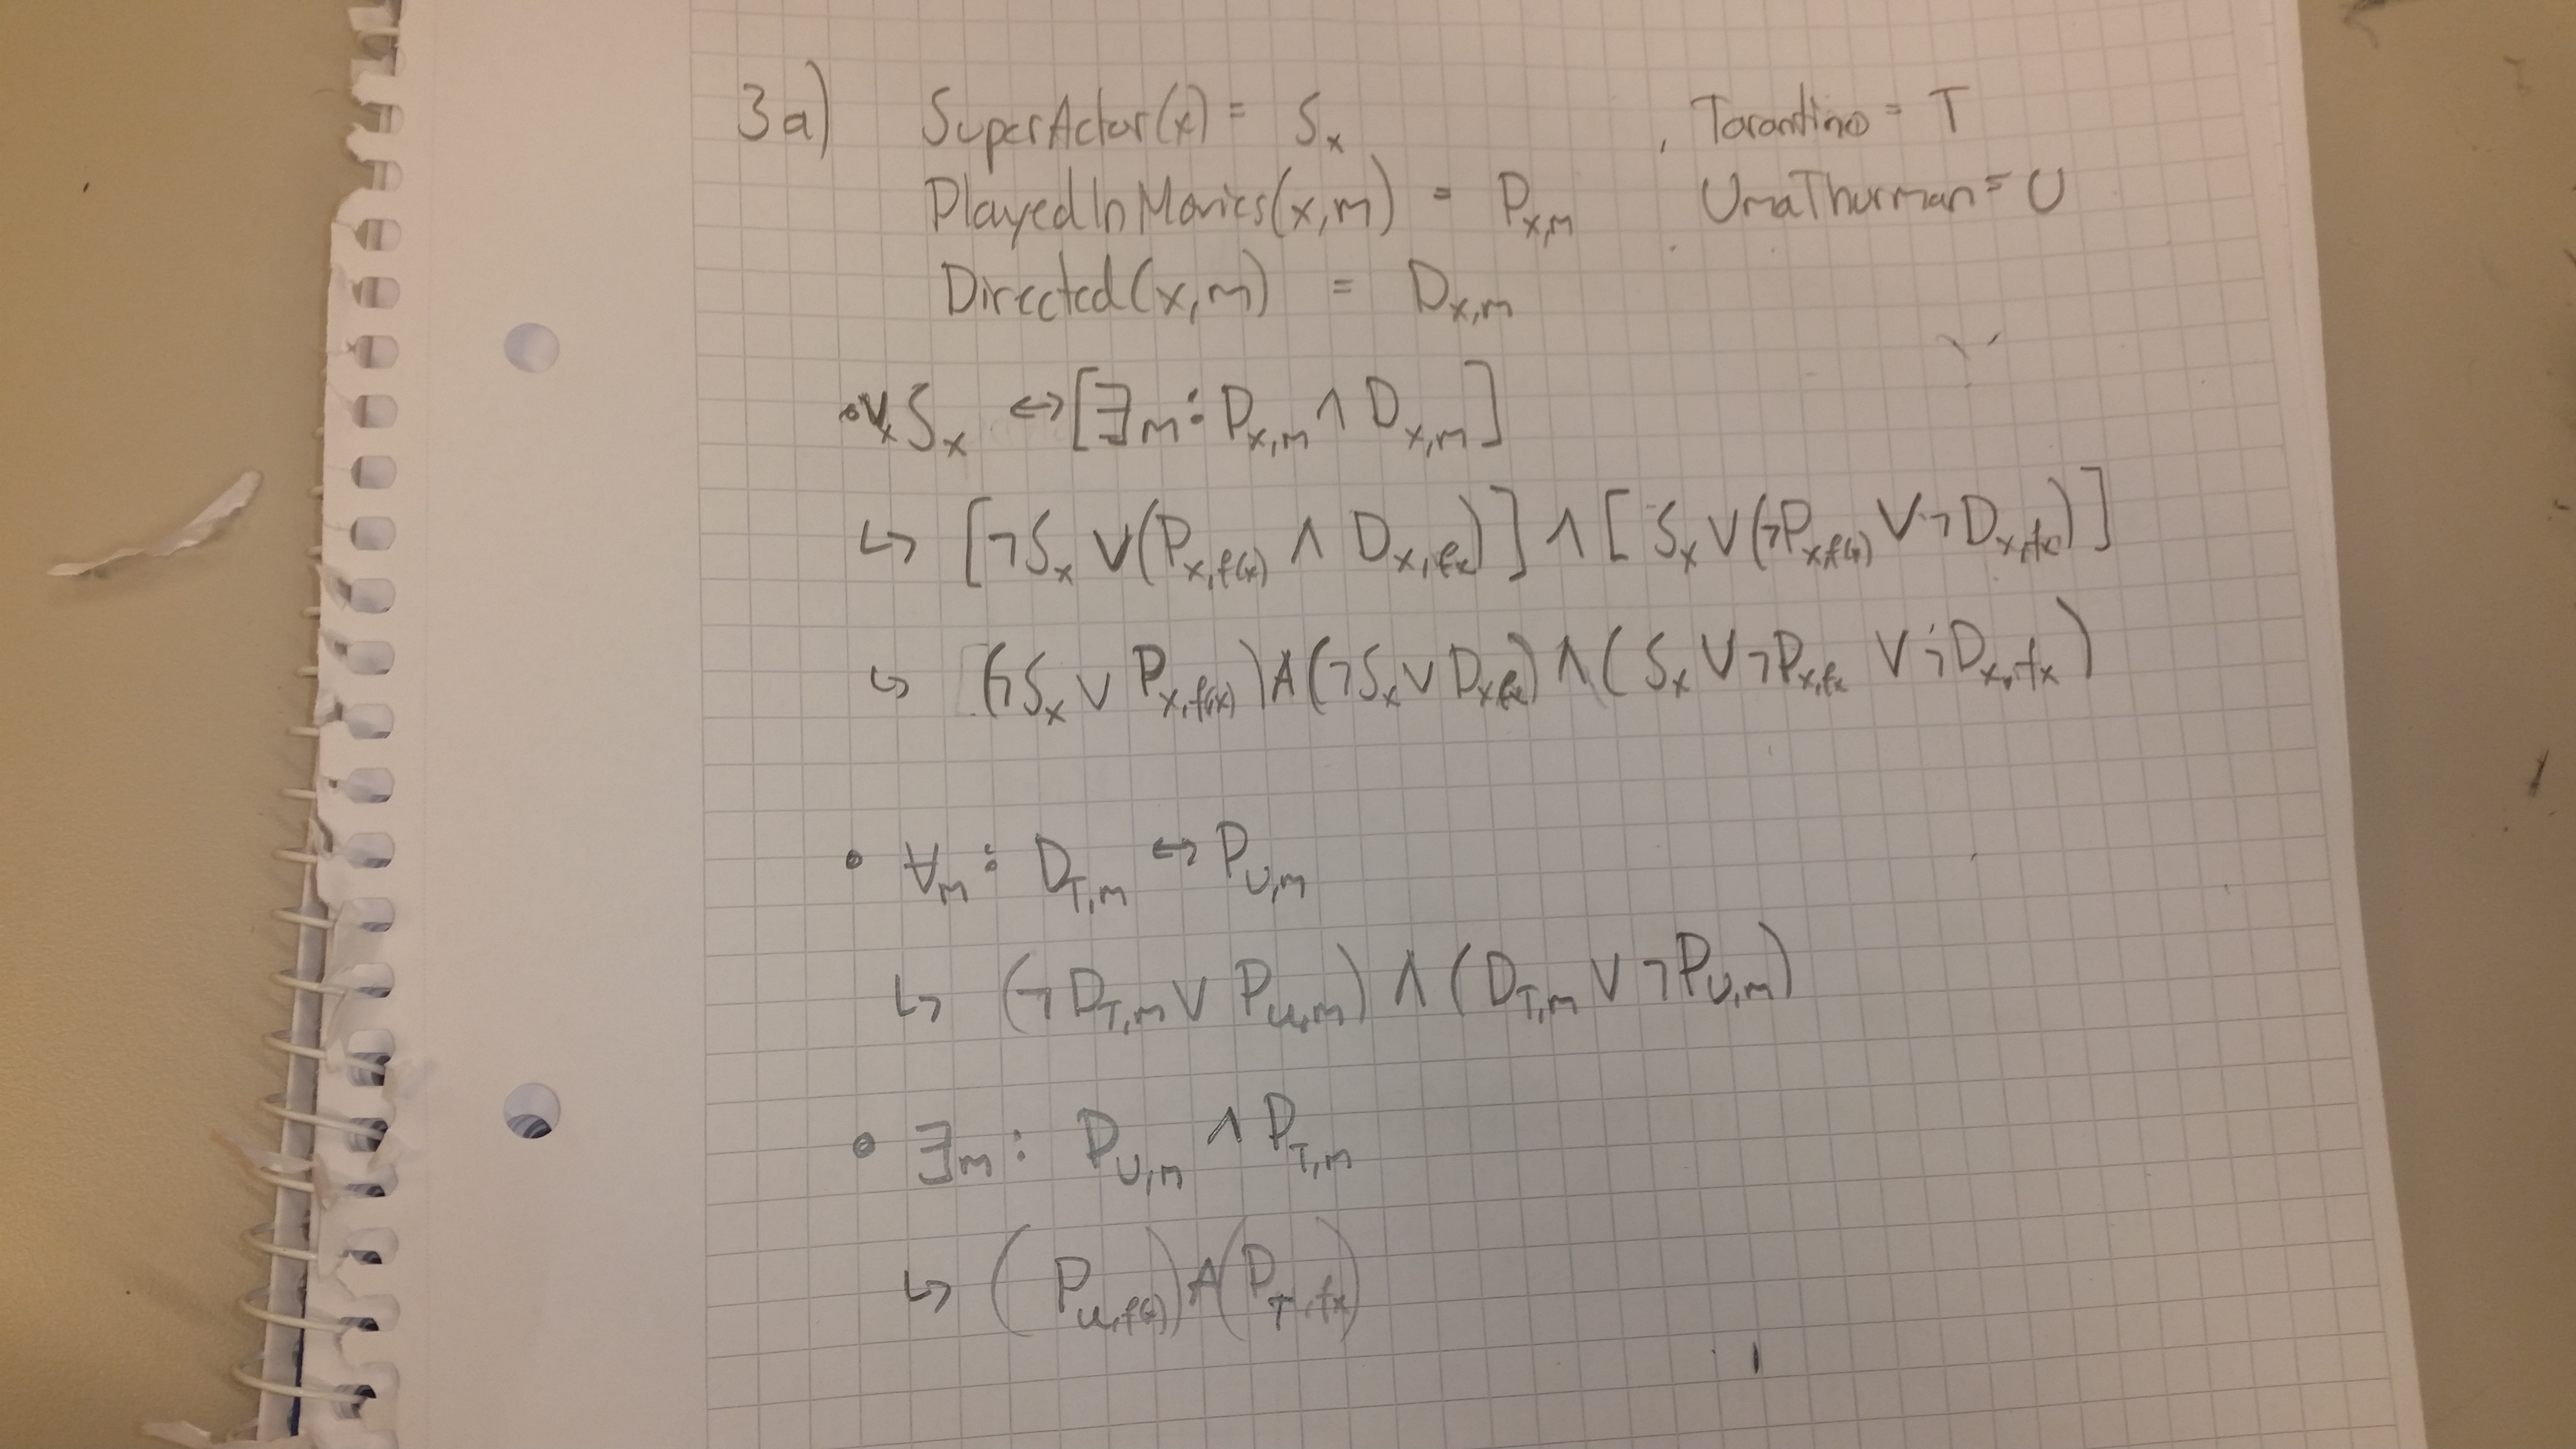 3a) SuperActor(x) = Sx , Tarantino = T
PlayedInMovies(x,m) = Px,m UmaThurman = U
Directed(x,m) = Dx,m
• ∀x Sx ⇔ [∃m: Px,m ∧ Dx,m]
↳ [¬Sx ∨ (Px,f(x) ∧ Dx,fx)] ∧ [Sx ∨ (¬Px,f(x) ∨ ¬Dx,f(x))]
↳ (¬Sx ∨ Px,f(x)) ∧ (¬Sx ∨ Dx,fx) ∧ (Sx ∨ ¬Px,fx ∨ ¬Dx,fx)
• ∀m: DT,m ⇔ PU,m
↳ (¬DT,m ∨ PU,m) ∧ (DT,m ∨ ¬PU,m)
• ∃m: PU,m ∧ PT,m
↳ (PU,f(x)) ∧ (PT,fx)